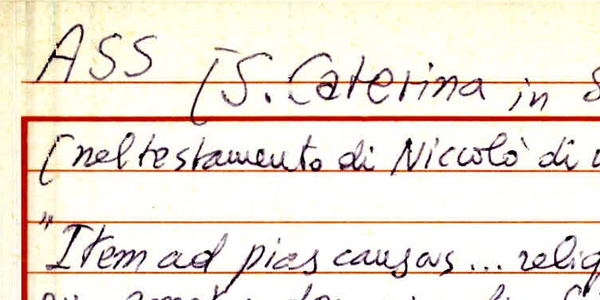 ASS [S. Caterina in
[nel testamento di Niccolò di
"Item ad pias causas... relig